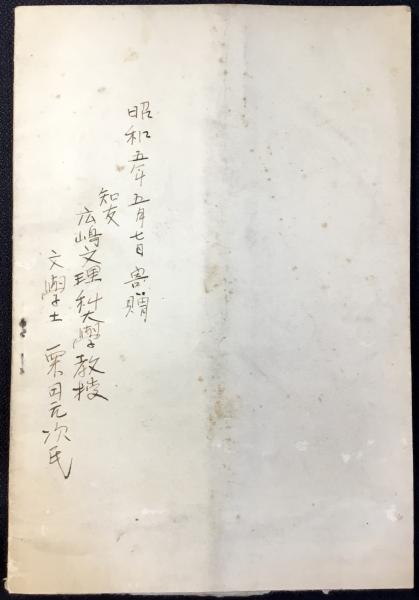 昭和五年五月七日寄贈
知友
広嶋文理科大學教授
文學士 栗田元次氏